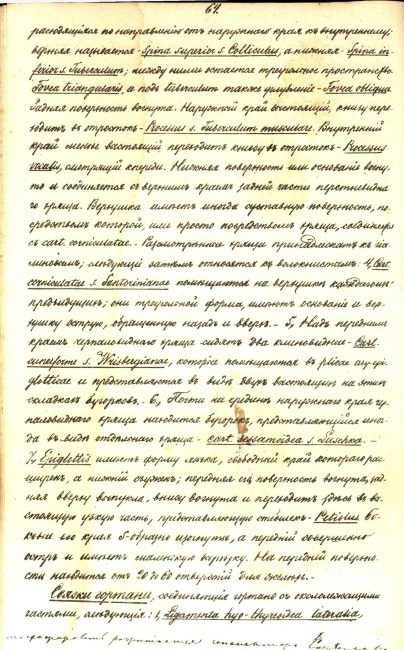 64.
расходящiяся по направленiю отъ наружнаго края къ внутреннему;
верхняя называется - Spina superior s. Colliculus, а нижняя - Spina in-
ferior s. Tuberculum; между ними остается треугольное пространство
Fovea triangularis, а подъ tuberculum также углубленiе - Fovea oblonga
Задняя поверхность вогнута. Наружный край состоящiй, книзу пере-
ходитъ въ отростокъ - Processus s. Tuberculum musculare. Внутреннiй
край менѣе выстоящiй переходитъ книзу въ отростокъ - Processus
vocalis, смотрящiй кпереди. Нижняя поверхность или основанiе вогну-
то и соединяется съ верхнимъ краемъ задней части перстневидна-
го хряща. Верхушка имѣетъ иногда суставную поверхность, по-
средствомъ которой, или просто посредствомъ хряща, соединяется
съ cart. corniculatae. - Разсмотрѣнные хрящи принадлежатъ къ гiа-
линовымъ; слѣдующiе затѣмъ относятся къ волокнистымъ: 4, Cart.
corniculatae s. Santorinianae помѣщаются на верхушкѣ каждаго
предъидущихъ; они треугольной формы, имѣютъ основанiе и вер-
хушку острую, обращенную назадъ и вверхъ. - 5, Надъ переднимъ
краемъ черпаловиднаго хряща сидятъ два клиновидные - Cart.
cuneiforme s. Wrisbergianae, которые помѣщаются въ plicae ary-epi-
glotticae и представляются въ видѣ двухъ выстоящихъ на этихъ
складкахъ бугорковъ. - 6, Почти на срединѣ наружнаго края чер-
паловиднаго хряща находится бугорокъ, представляющiйся иног-
да въ видѣ отдѣльнаго хряща - cart. sesamoidea s. Luschka. -
7, Epiglottis имѣетъ форму языка, свободный край котораго рас-
ширенъ, а нижнiй съуженъ; передняя его поверхность вогнута, зад-
няя вверху выпукла, внизу вогнута и переходитъ здѣсь въ вы-
стоящую узкую часть, представляющую стебелекъ - Petiolus. Бо-
ковые его края S-образно изогнуты, а переднiй совершенно
остръ и имѣетъ маленькую вырѣзку. На передней поверхно-
сти находится отъ 20 до 60 отверстiй для железъ. -
Связки гортани, соединяющiя гортань съ окололежащими
частями, слѣдующiя: 1, Ligamenta hyo-thyreoidea lateralia,